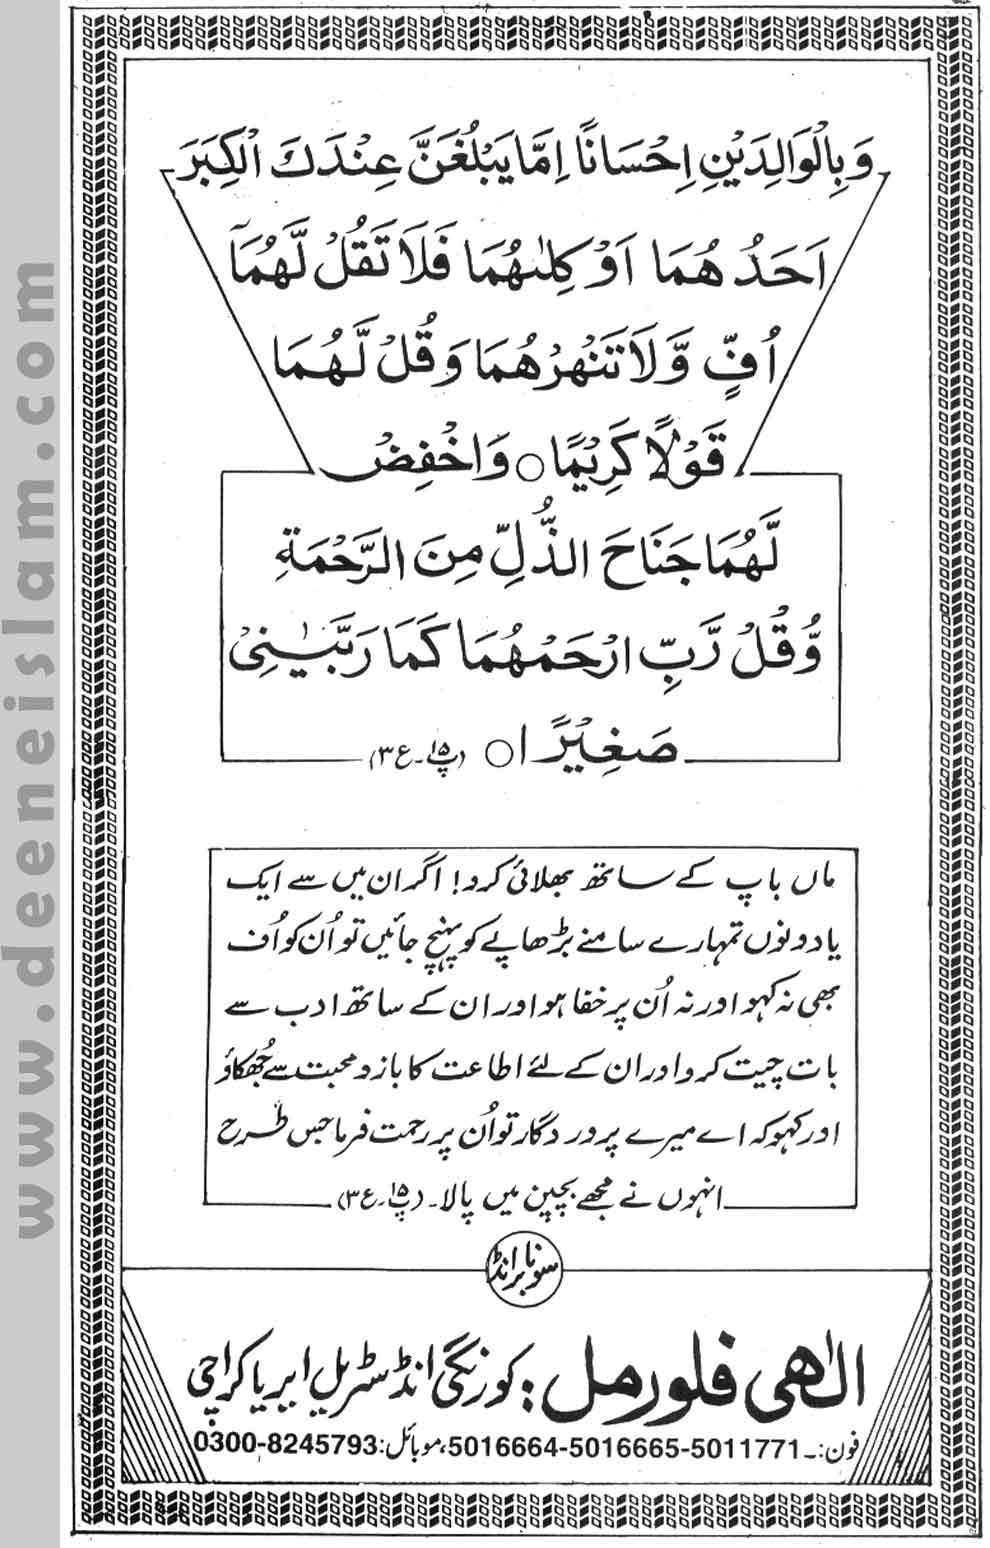 وَبِالْوَالِدَيْنِ اِحْسَانًا اِمَّا يَبْلُغَنَّ عِنْدَكَ الْكِبَرَ
اَحَدُهُمَا اَوْ كِلٰهُمَا فَلَا تَقُلْ لَّهُمَآ
اُفٍّ وَّلَا تَنْهَرْهُمَا وَقُلْ لَّهُمَا
قَوْلًا كَرِيْمًا ○ وَاخْفِضْ
لَهُمَا جَنَاحَ الذُّلِّ مِنَ الرَّحْمَةِ
وَقُلْ رَّبِّ ارْحَمْهُمَا كَمَا رَبَّيٰنِىْ
صَغِيْرًا ○ (پ۱۵۔ع۳)
ماں باپ کے ساتھ بھلائی کرو! اگر ان میں سے ایک
یا دونوں تمہارے سامنے بڑھاپے کو پہنچ جائیں تو اُن کو اُف
بھی نہ کہو اور نہ اُن پر خفا ہو اور ان کے ساتھ ادب سے
بات چیت کرو اور ان کے لئے اطاعت کا بازو محبت سے جُھکاؤ
اور کہو کہ اے میرے پروردگار تو اُن پر رحمت فرما جس طرح
انہوں نے مجھے بچپن میں پالا۔ (پ۱۵۔ع۳)
سونا برانڈ
الٰہی فلور مل: کورنگی انڈسٹریل ایریا کراچی
فون:۔ 5016664-5016665-5011771، موبائل: 0300-8245793
www.deeneislam.com